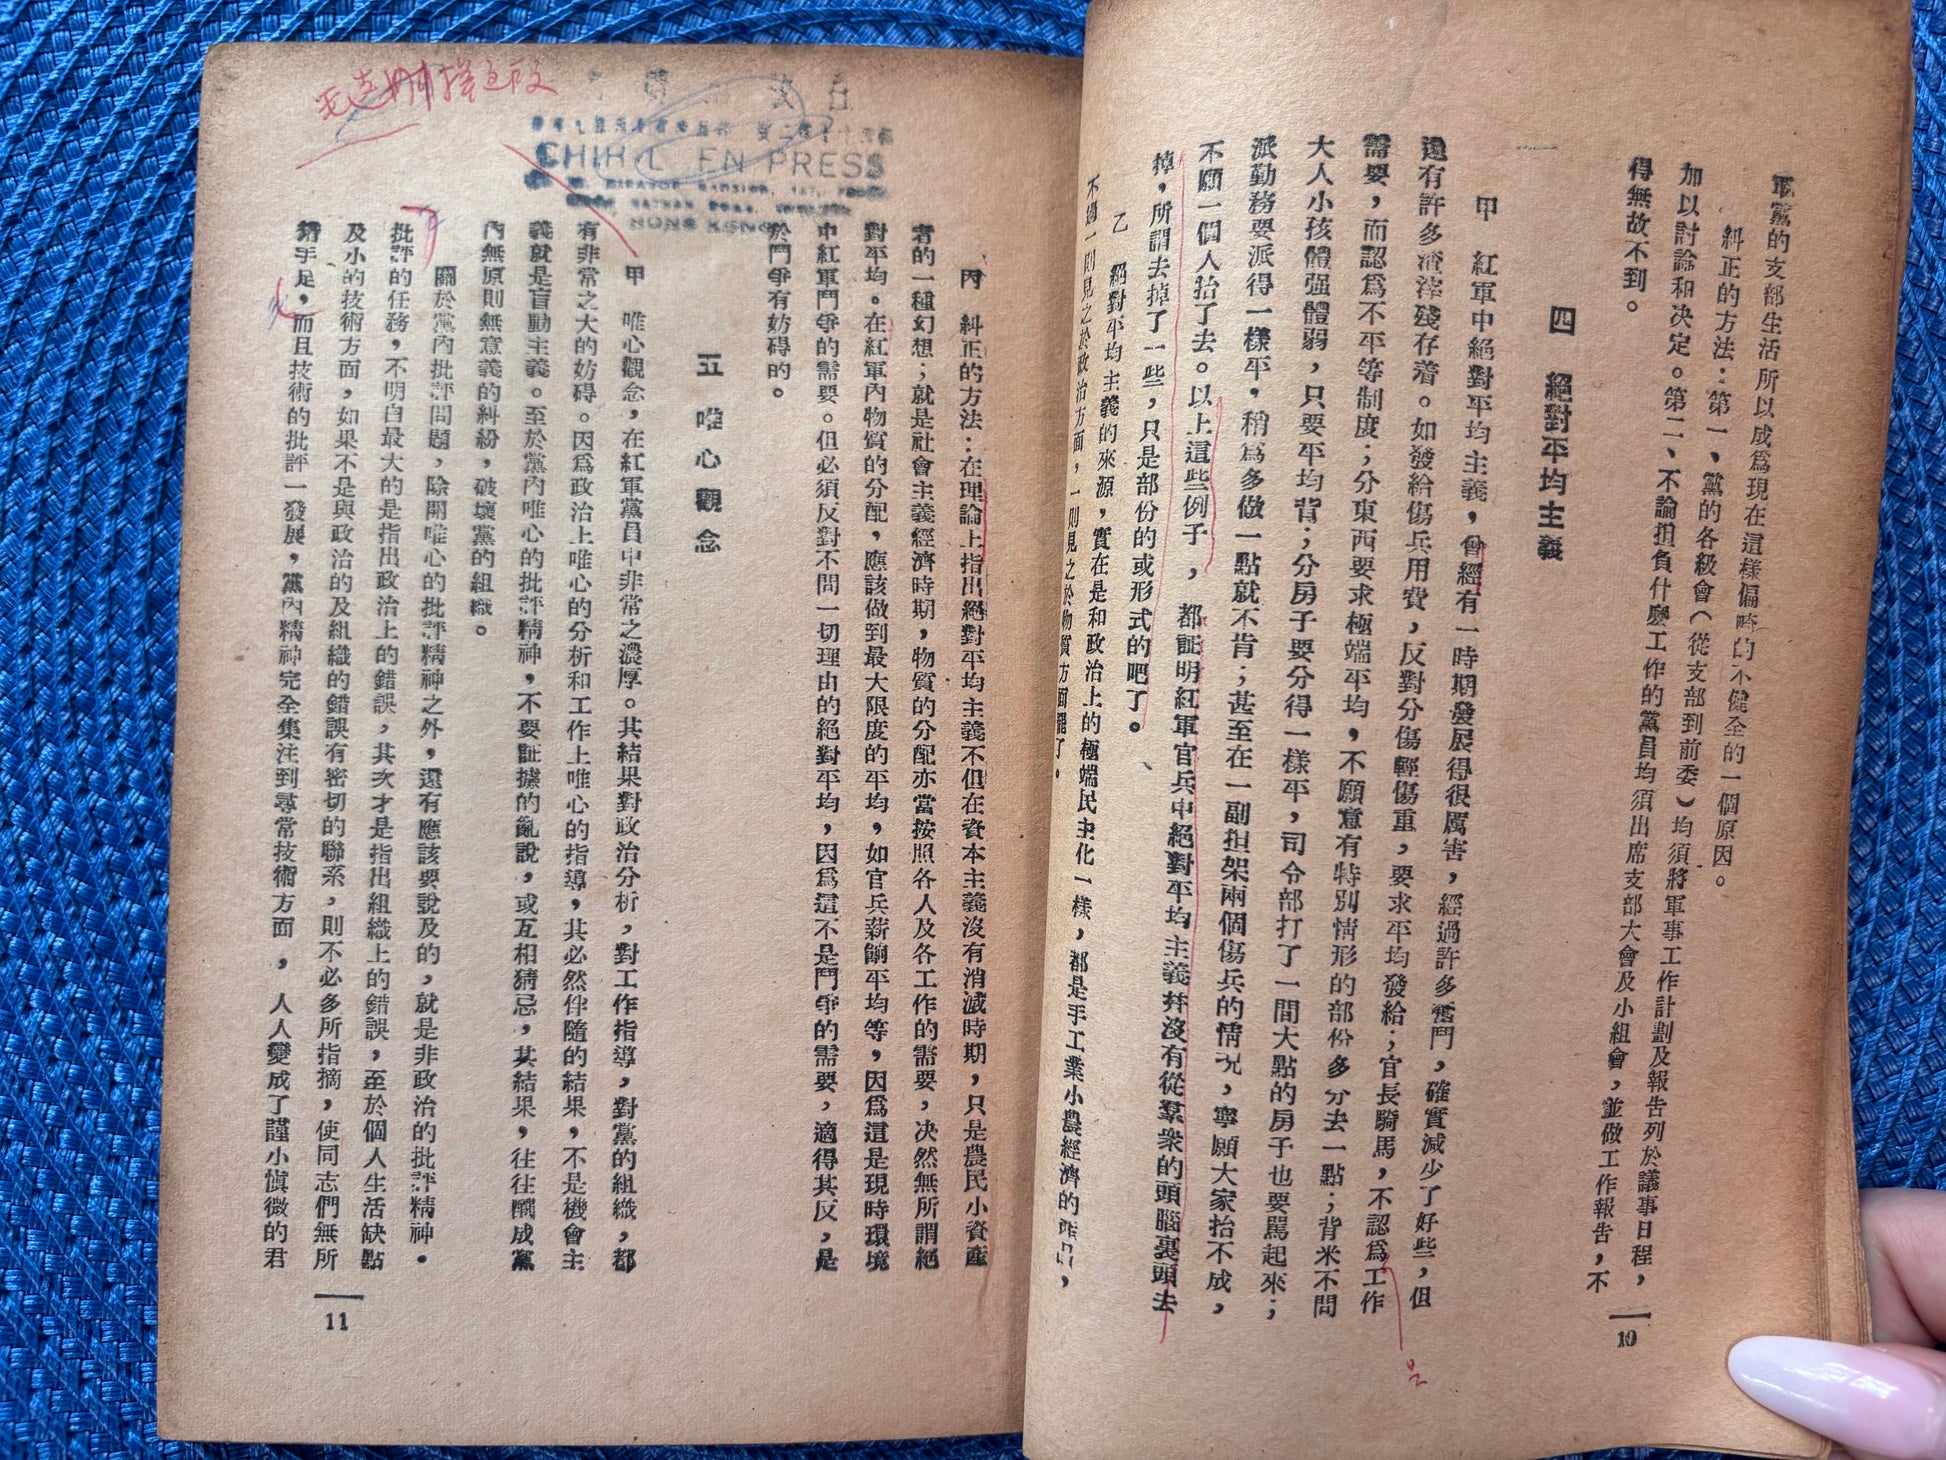 軍黨的支部生活所以成爲現在這樣偏畸的不健全的一個原因。
糾正的方法:第一、黨的各級會(從支部到前委)均須將軍事工作計劃及報告列於議事日程,
加以討論和决定。第二、不論担負什麽工作的黨員均須出席支部大會及小組會,並做工作報告,不
得無故不到。
四 絕對平均主義
甲 紅軍中絕對平均主義,曾經有一時期發展得很厲害,經過許多奮鬥,確實減少了好些,但
還有許多渣滓殘存着。如發給傷兵用費,反對分傷輕傷重,要求平均發給;官長騎馬,不認爲工作
需要,而認爲不平等制度;分東西要求極端平均,不願意有特別情形的部份多分去一點;背米不問
大人小孩體强體弱,只要平均背;分房子要分得一樣平,司令部打了一間大點的房子也要駡起來;
派勤務要派得一樣平,稍爲多做一點就不肯;甚至在一副担架兩個傷兵的情况,寧願大家抬不成,
不願一個人抬了去。以上這些例子,都証明紅軍官兵中絕對平均主義并沒有從羣衆的頭腦裏頭去
掉,所謂去掉了一些,只是部份的或形式的吧了。
乙 絕對平均主義的來源,實在是和政治上的極端民主化一樣,都是手工業小農經濟的產品,
不過一則見之於政治方面,一則見之於物質方面罷了。
10
丙 糾正的方法:在理論上指出絕對平均主義不但在資本主義沒有消滅時期,只是農民小資產
者的一種幻想;就是社會主義經濟時期,物質的分配亦當按照各人及各工作的需要,决然無所謂絕
對平均。在紅軍內物質的分配,應該做到最大限度的平均,如官兵薪餉平均等,因爲這是現時環境
中紅軍鬥爭的需要。但必須反對不問一切理由的絕對平均,因爲這不是鬥爭的需要,適得其反,是
於鬥爭有妨碍的。
五 唯心觀念
甲 唯心觀念,在紅軍黨員中非常之濃厚。其結果對政治分析,對工作指導,對黨的組織,都
有非常之大的妨碍。因爲政治上唯心的分析和工作上唯心的指導,其必然伴隨的結果,不是機會主
義就是盲動主義。至於黨內唯心的批評精神,不要証據的亂說,或互相猜忌,其結果,往往釀成黨
內無原則無意義的糾紛,破壞黨的組織。
關於黨內批評問題,除開唯心的批評精神之外,還有應該要說及的,就是非政治的批評精神。
批評的任務,不明白最大的是指出政治上的錯誤,其次才是指出組織上的錯誤,至於個人生活缺點
及小的技術方面,如果不是與政治的及組織的錯誤有密切的聯系,則不必多所指摘,使同志們無所
錯手足,而且技術的批評一發展,黨內精神完全集注到尋常技術方面,人人變成了謹小愼微的君
11
PRESS
HONG KONG